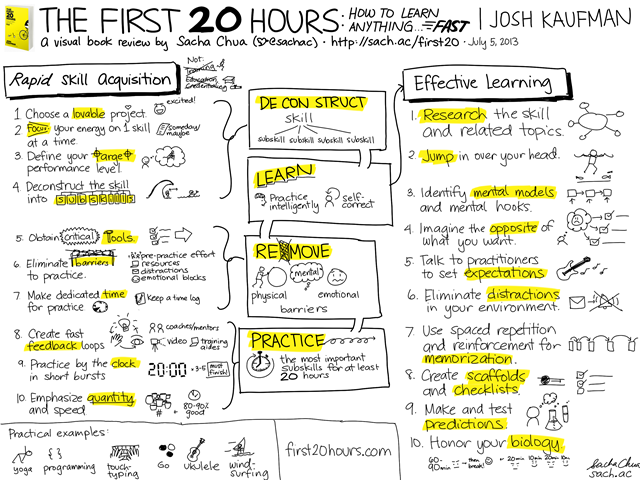 THE FIRST 20 HOURS: HOW TO LEARN ANYTHING... FAST | JOSH KAUFMAN
a visual book review by Sacha Chua (@sachac) · http://sach.ac/first20 · July 5, 2013
Rapid Skill Acquisition
Not:
Training
Education
Credentialing
1 Choose a lovable project.
excited!
2 Focus your energy on 1 skill
at a time.
someday/
maybe
3 Define your target
performance level.
4 Deconstruct the skill
into subskills
5. Obtain critical tools.
6. Eliminate barriers
to practice.
pre-practice effort
resources
distractions
emotional blocks
7. Make dedicated time
for practice
Keep a time log
8. Create fast
feedback loops
coaches/mentors
video
training
aides
9. Practice by the clock
in short bursts
20:00
3-5
must
finish!
10. Emphasize quantity
and speed
#
80-90%
good
DECONSTRUCT
skill
subskill subskill subskill subskill
LEARN
Practice
intelligently
self-
correct
REMOVE
physical
mental
emotional
barriers
PRACTICE
the most important
subskills for at least
20 hours
Effective Learning
1. Research the skill
and related topics.
2. Jump in over your head.
3. Identify mental models
and mental hooks.
4. Imagine the opposite of
what you want.
5. Talk to practitioners
to set expectations
6. Eliminate distractions
in your environment.
7. Use spaced repetition
and reinforcement for
memorization.
8. Create scaffolds
and checklists.
9. Make and test
predictions.
10. Honor your biology.
60-
90min
then
break!
20min 10min 20min 10m
Practical examples:
yoga
{ }
programming
touch-
typing
Go
Ukulele
wind-
surfing
first20hours.com
Sacha Chua
sach.ac